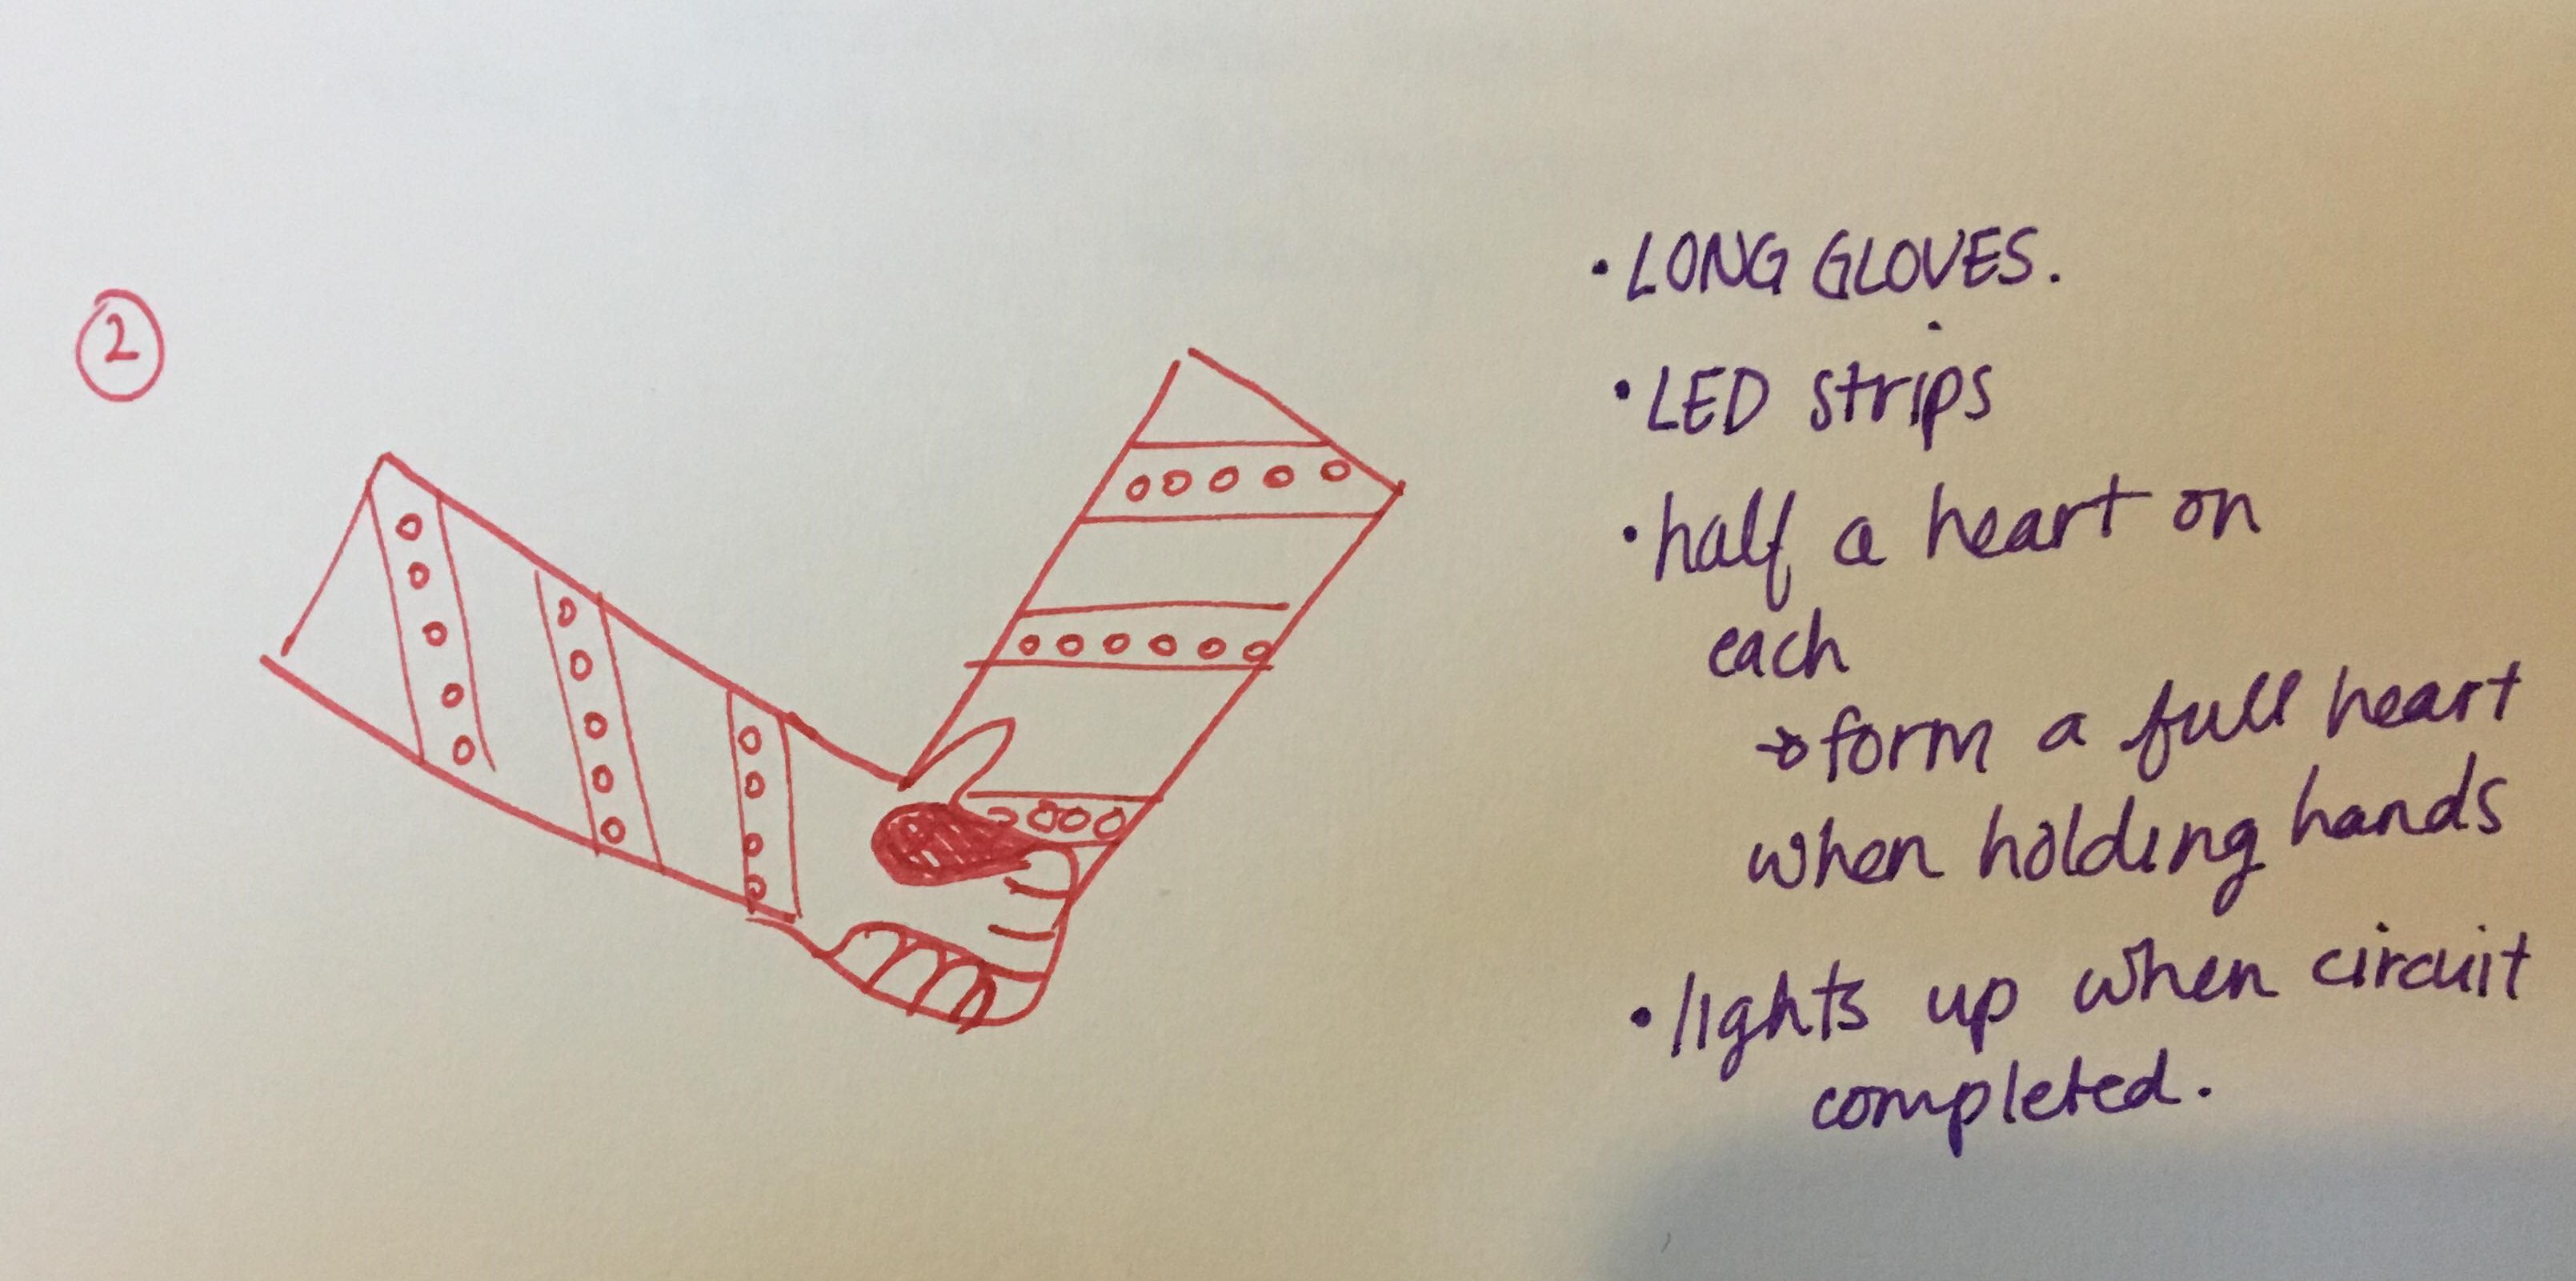 2
• LONG GLOVES.
• LED strips
• half a heart on
each
→ form a full heart
when holding hands
• lights up when circuit
completed.